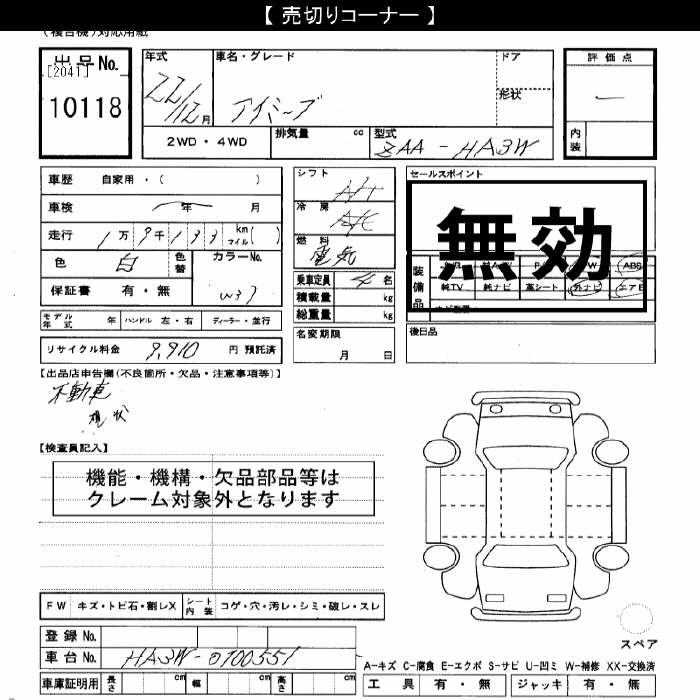 【 売切りコーナー 】
(複合機)対応用紙
出品No.
[2041]
10118
年式
22/12月
車名・グレード
アイミーブ
ドア
形状
評価点
内装
2WD・4WD
排気量 cc
型式
ZAA - HA3W
車歴 自家用・( )
車検 年 月
走行 1万9千133 km マイル( )
色 白
色替
カラーNo.
W37
保証書 有・無
シフト
A/T
冷房
A/C
燃料
電気
乗車定員 4 名
積載量 kg
総重量 kg
セールスポイント
無効
装備品
ABS
純TV
純ナビ
革シート
外ナビ
エアB
モデル年式 年
ハンドル 左・右
ディーラー・並行
名変期限
月 日
後日品
リサイクル料金 9,910 円 預託済
【出品店申告欄(不良箇所・欠品・注意事項等)】
不動車
現状
【検査員記入】
機能・機構・欠品部品等は
クレーム対象外となります
FW キズ・トビ石・割レX
シート内装 コゲ・穴・汚レ・シミ・破レ・スレ
登録No.
車台No. HA3W-0100551
車庫証明用 長さ cm 幅 cm 高さ cm
スペア
A-キズ C-腐食 E-エクボ S-サビ U-凹ミ W-補修 XX-交換済
工具 有・無 ジャッキ 有・無